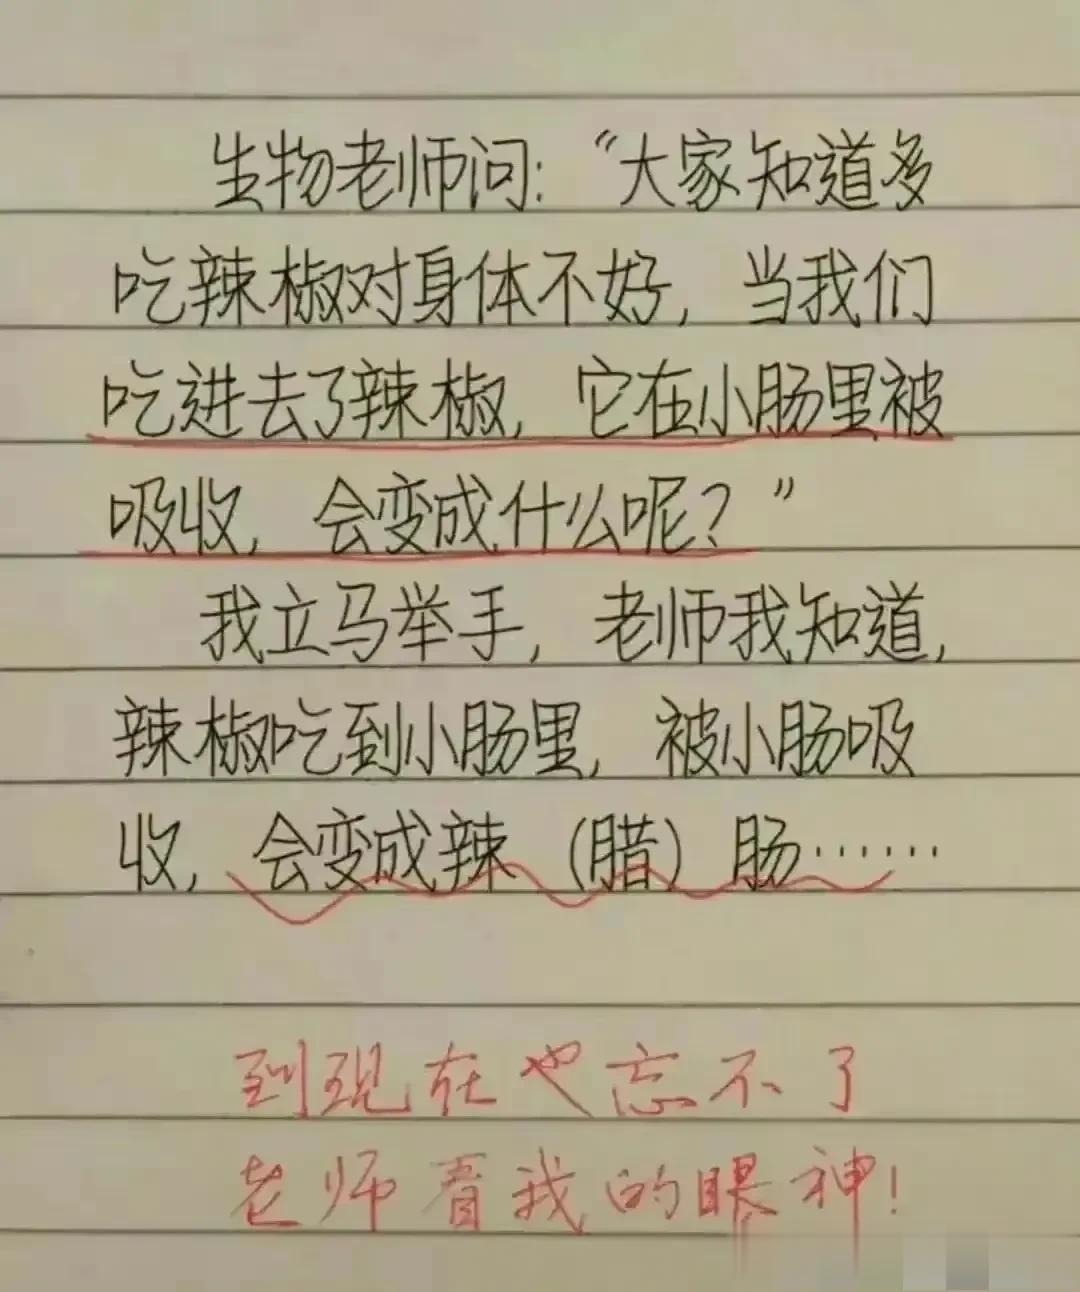 生物老师问:“大家知道多
吃辣椒对身体不好,当我们
吃进去了辣椒,它在小肠里被
吸收,会变成什么呢?”
我立马举手,老师我知道,
辣椒吃到小肠里,被小肠吸
收,会变成辣(腊)肠……
到现在也忘不了
老师看我的眼神!